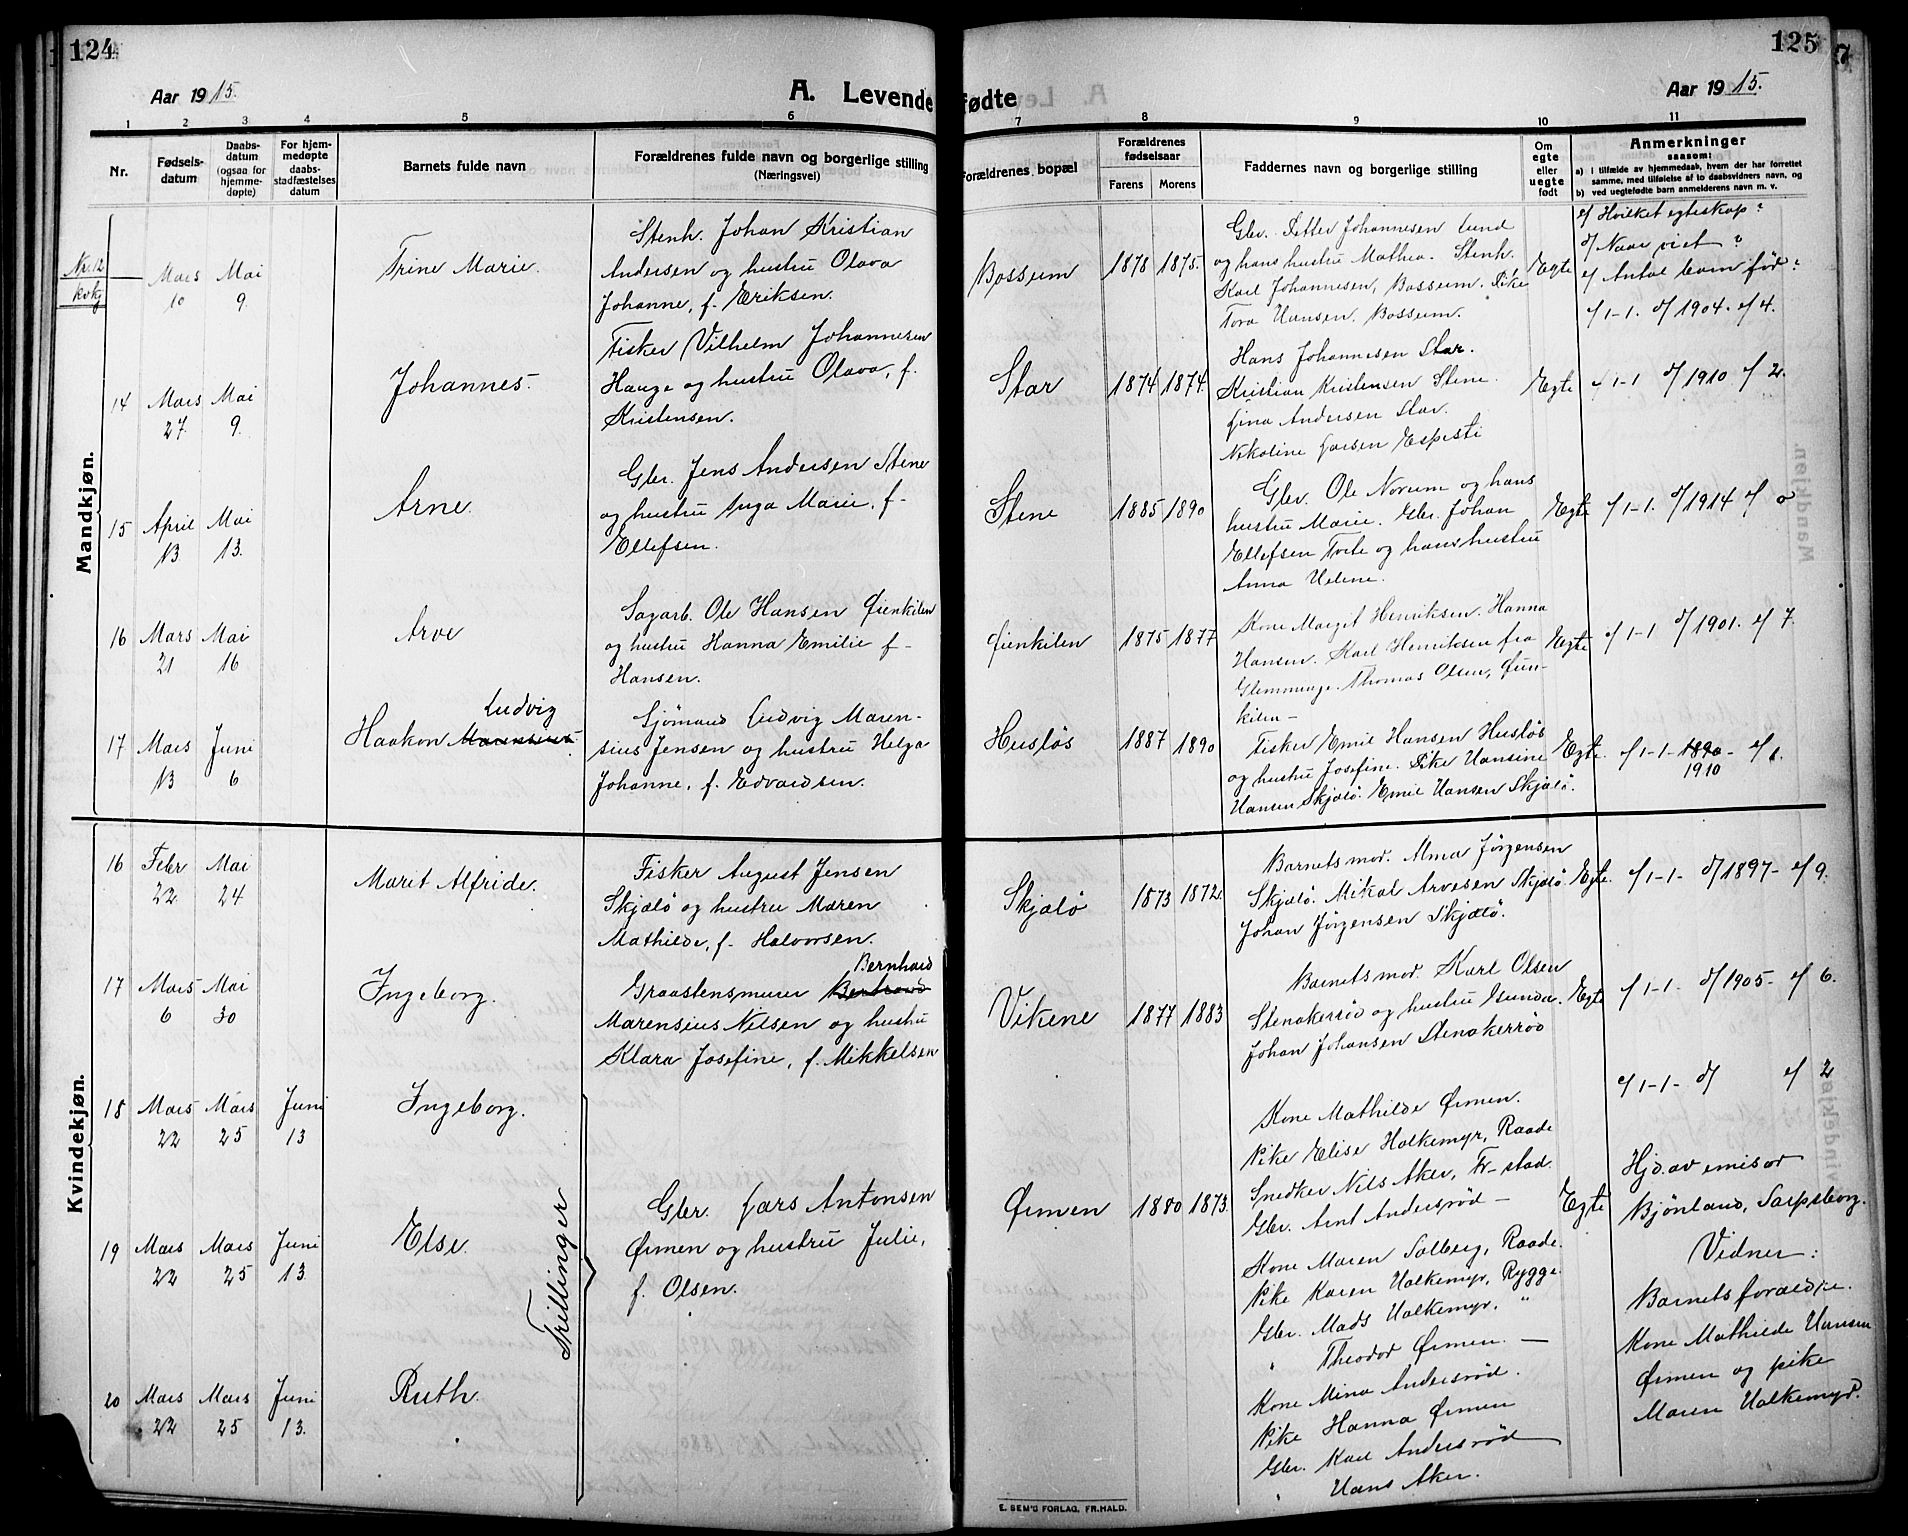 124
Aar 1915.
A. Levende
1 2 3 4 5 6
Nr.
Fødsels-
datum
Daabs-
datum
(ogsaa for
hjemme-
døpte)
For hjem-
medøpte
daabs-
stadfæstelses
datum
Barnets fulde navn
Forældrenes fulde navn og borgerlige stilling
(Næringsvei)
Mandkjøn.
Nr. 12
kvkj
Mars
10
Mai
9.
Trine Marie.
Stenh. Johan Kristian
Andersen og hustru Olava
Johanne, f. Eriksen.
14
Mars
27.
Mai
9.
Johannes.
Fisker Vilhelm Johannesen
Hauge og hustru Olava, f.
Kristensen.
15
April
13
Mai
13.
Arne.
Gbr. Jens Andersen Stene
og hustru Inga Marie, f-
Ellefsen.
16
Mars
21
Mai
16
Arve
Sagarb. Ole Hansen Øienkilen
og hustru Hanna Emilie f-
Hansen.
17
Mars
13
Juni
6
Ludvig
Haakon Marensius.
Sjømand Ludvig Maren-
sius Jensen og hustru Helga
Johanne, f. Edvardsen.
Kvindekjøn.
16
Febr
22
Mai
24
Marit Alfride.
Fisker August Jensen
Skjælø og hustru Maren
Mathilde, f- Halvorsen.
17
Mars
6
Mai
30
Ingeborg.
Bernhard
Graastensmurer Bertrand
Marensius Nilsen og hustru
Klara Josefine, f. Mikkelsen
18
Mars
22
Mars
25
Juni
13
Ingeborg.
19
Mars
22
Mars
25
Juni
13.
Else.
Trillinger
Gbr. Lars Antonsen
Ørmen og hustru Julie,
f. Olsen.
20
Mars
22
Mars
25
Juni
13.
Ruth.
125
7
Aar 1915.
fødte
7 8 9 10 11
Forældrenes bopæl
Forældrenes
fødselsaar
Farens Morens
Faddernes navn og borgerlige stilling
Om
egte
eller
uegte
født
Anmerkninger
saasom:
a) i tilfælde av hjemmedaab, hvem der har forrettet
samme, med tilføielse af to daabsvidners navn, og
b) ved uegtefødte barn anmelderens navn m. v.
Bossum 1878 1875.
Gbr. Petter Johannesen Lund
og hans hustru Mathea. Stenh.
Karl Johannesen, Bossum. Pike
Tora Hansen. Bossum.
Egte
c/ Hvilket egteskap?
d/ Naar viet?
e/ Antal barn før?
c/ 1-1. d/ 1904. e/ 4.
Star 1874 1874.
Hans Johannesen Star.
Kristian Kristensen Stene.
Lina Andersen Star.
Nikoline Larsen Espesti
Egte c/ 1-1 d/ 1910 e/ 2.
Stene 1885 1890
Gbr. Ole Norum og hans
hustru Marie. Gbr. Johan
Ellefsen Tvete og hans hustru
Anna Helene.
Egte c/ 1-1. d/ 1914 e/ 0
Øienkilen 1875 1877
Kone Margit Henriksen. Hanna
Hansen. Karl Henriksen fra
Glemminge. Thomas Olsen, Øien-
kilen-
Egte c/ 1-1 d/ 1901. e/ 7.
Husløs 1887 1890
Fisker Emil Hansen Husløs
og hustru Josefine. Pike Hansine
Hansen Skjælø. Emil Hansen Skjælø.
Egte. c/ 1-1- 1890- e/ 1.
1910
Skjælø 1873 1872
Barnets mor. Alma Jørgensen
Skjælø. Mikal Arvesen Skjælø.
Johan Jørgensen Skjælø.
Egte. c/ 1-1- d/ 1897- e/ 9.
Vikene 1877 1883
Barnets mor. Karl Olsen
Stenakerrød og hustru Gunda.
Johan Johansen Stenakerrød
Egte c/ 1-1. d/ 1905- e/ 6.
c/ 1-1- d/ e/ 2
Ørmen 1880 1873.
Kone Mathilde Ørmen.
Pike Elise Halkemyr, Raade
Snedker Nils Aker, Fr-stad.
Gbr. Arnt Andersrød -
Kone Maren Solberg, Raade.
Pike Karen Halkemyr, Rygge.
Gbr. Mads Halkemyr. "
" Theodor Ørmen. -
Kone Mina Andersrød.
Pike Hanna Ørmen
Gbr. Karl Andersrød
" Hans Aker.
Egte
Hjd. av emisær
Bjønland, Sarpsborg.
Vidner:
Barnets forældre.
Kone Mathilde Hansen
Ørmen og pike
Maren Halkemyr.
E. SEM'S FORLAG, FR.HALD.